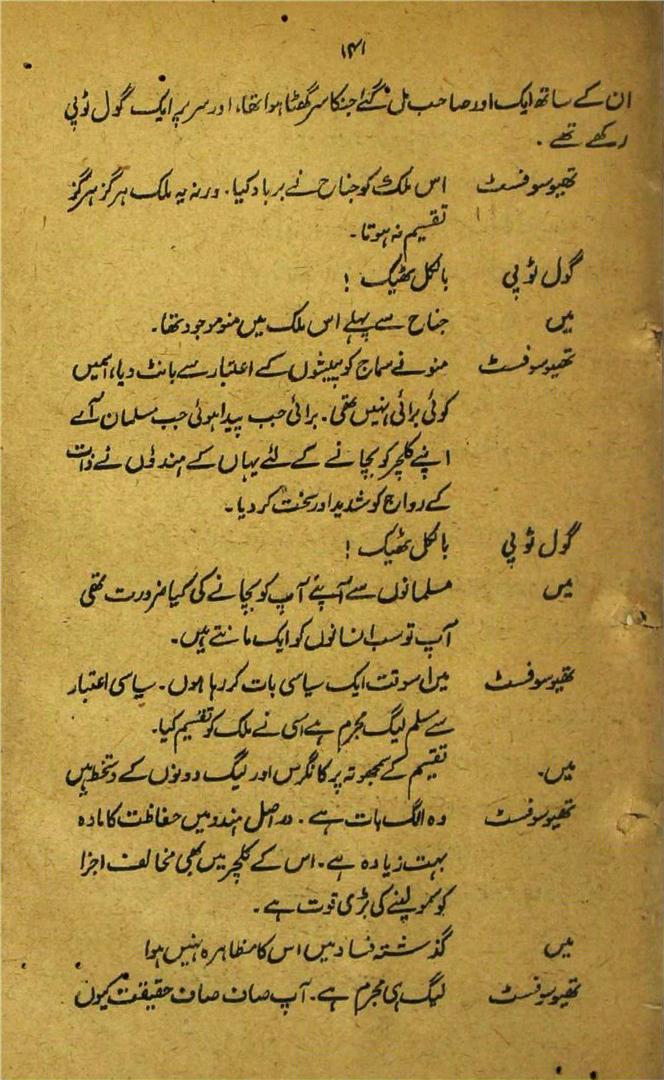 ۱۴۱
ان کے ساتھ ایک اور صاحب مل گئے جنکا سر گھٹا ہوا تھا، اور سر پر ایک گول ٹوپی
رکھے تھے ۔
تھیوسوفسٹ اس ملک کو جناح نے برباد کیا۔ ورنہ یہ ملک ہرگز ہرگز
تقسیم نہ ہوتا۔
گول ٹوپی بالکل ٹھیک !
میں جناح سے پہلے اس ملک میں منو موجود تھا۔
تھیوسوفسٹ منو نے سماج کو پیشوں کے اعتبار سے بانٹ دیا، اسمیں
کوئی برائی نہیں تھی۔ برائی جب پیدا ہوئی جب مسلمان آئے
اپنے کلچر کو بچانے کے لئے یہاں کے ہندؤں نے ذات
کے رواج کو شدید اور سخت کر دیا۔
گول ٹوپی بالکل ٹھیک !
میں مسلمانوں سے اپنے آپ کو بچانے کی کیا ضرورت تھی
آپ تو سب انسانوں کو ایک مانتے ہیں۔
تھیوسوفسٹ میں اسوقت ایک سیاسی بات کر رہا ہوں۔ سیاسی اعتبار
سے مسلم لیگ مجرم ہے اسی نے ملک کو تقسیم کیا۔
میں۔ تقسیم کے سمجھوتہ پر کانگرس اور لیگ دونوں کے دستخط ہیں
تھیوسوفسٹ وہ الگ بات ہے ۔ در اصل ہندو میں حفاظت کا مادہ
بہت زیادہ ہے۔ اس کے کلچر میں بھی مخالف اجزا
کو سمو لینے کی بڑی قوت ہے ۔
میں گذشتہ فساد میں اس کا مظاہرہ نہیں ہوا
تھیوسوفسٹ لیگ ہی مجرم ہے۔ آپ صاف صاف حقیقت کیوں